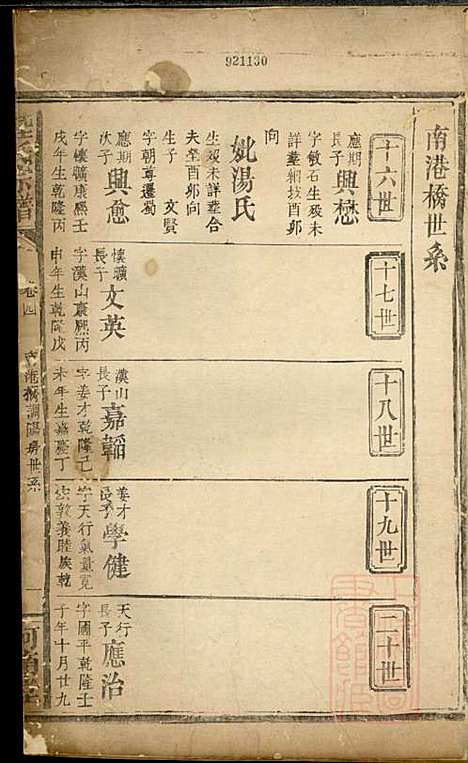 921130
南港橋世系
十六世
應期
長子
興懋
字敏石生歿未
詳葬網坟酉卯
向
妣湯氏
生歿未詳葬合
夫塋酉卯向
生子 文賢
字朝尊遷蜀
應期
次子
興愈
字懷曠康熙壬
戌年生乾隆丙
十七世
懷曠
長子
文英
字漢山康熙丙
申年生乾隆戊
十八世
漢山
長子
嘉韜
字姜才乾隆己
未年生嘉慶丁
十九世
姜才
長子
學健
字天行氣量寬
宏敦義睦族乾
二十世
天行
長子
應治
字國平乾隆壬
子年十月廿九
宗譜
卷四
南港橋調陽房世系
一